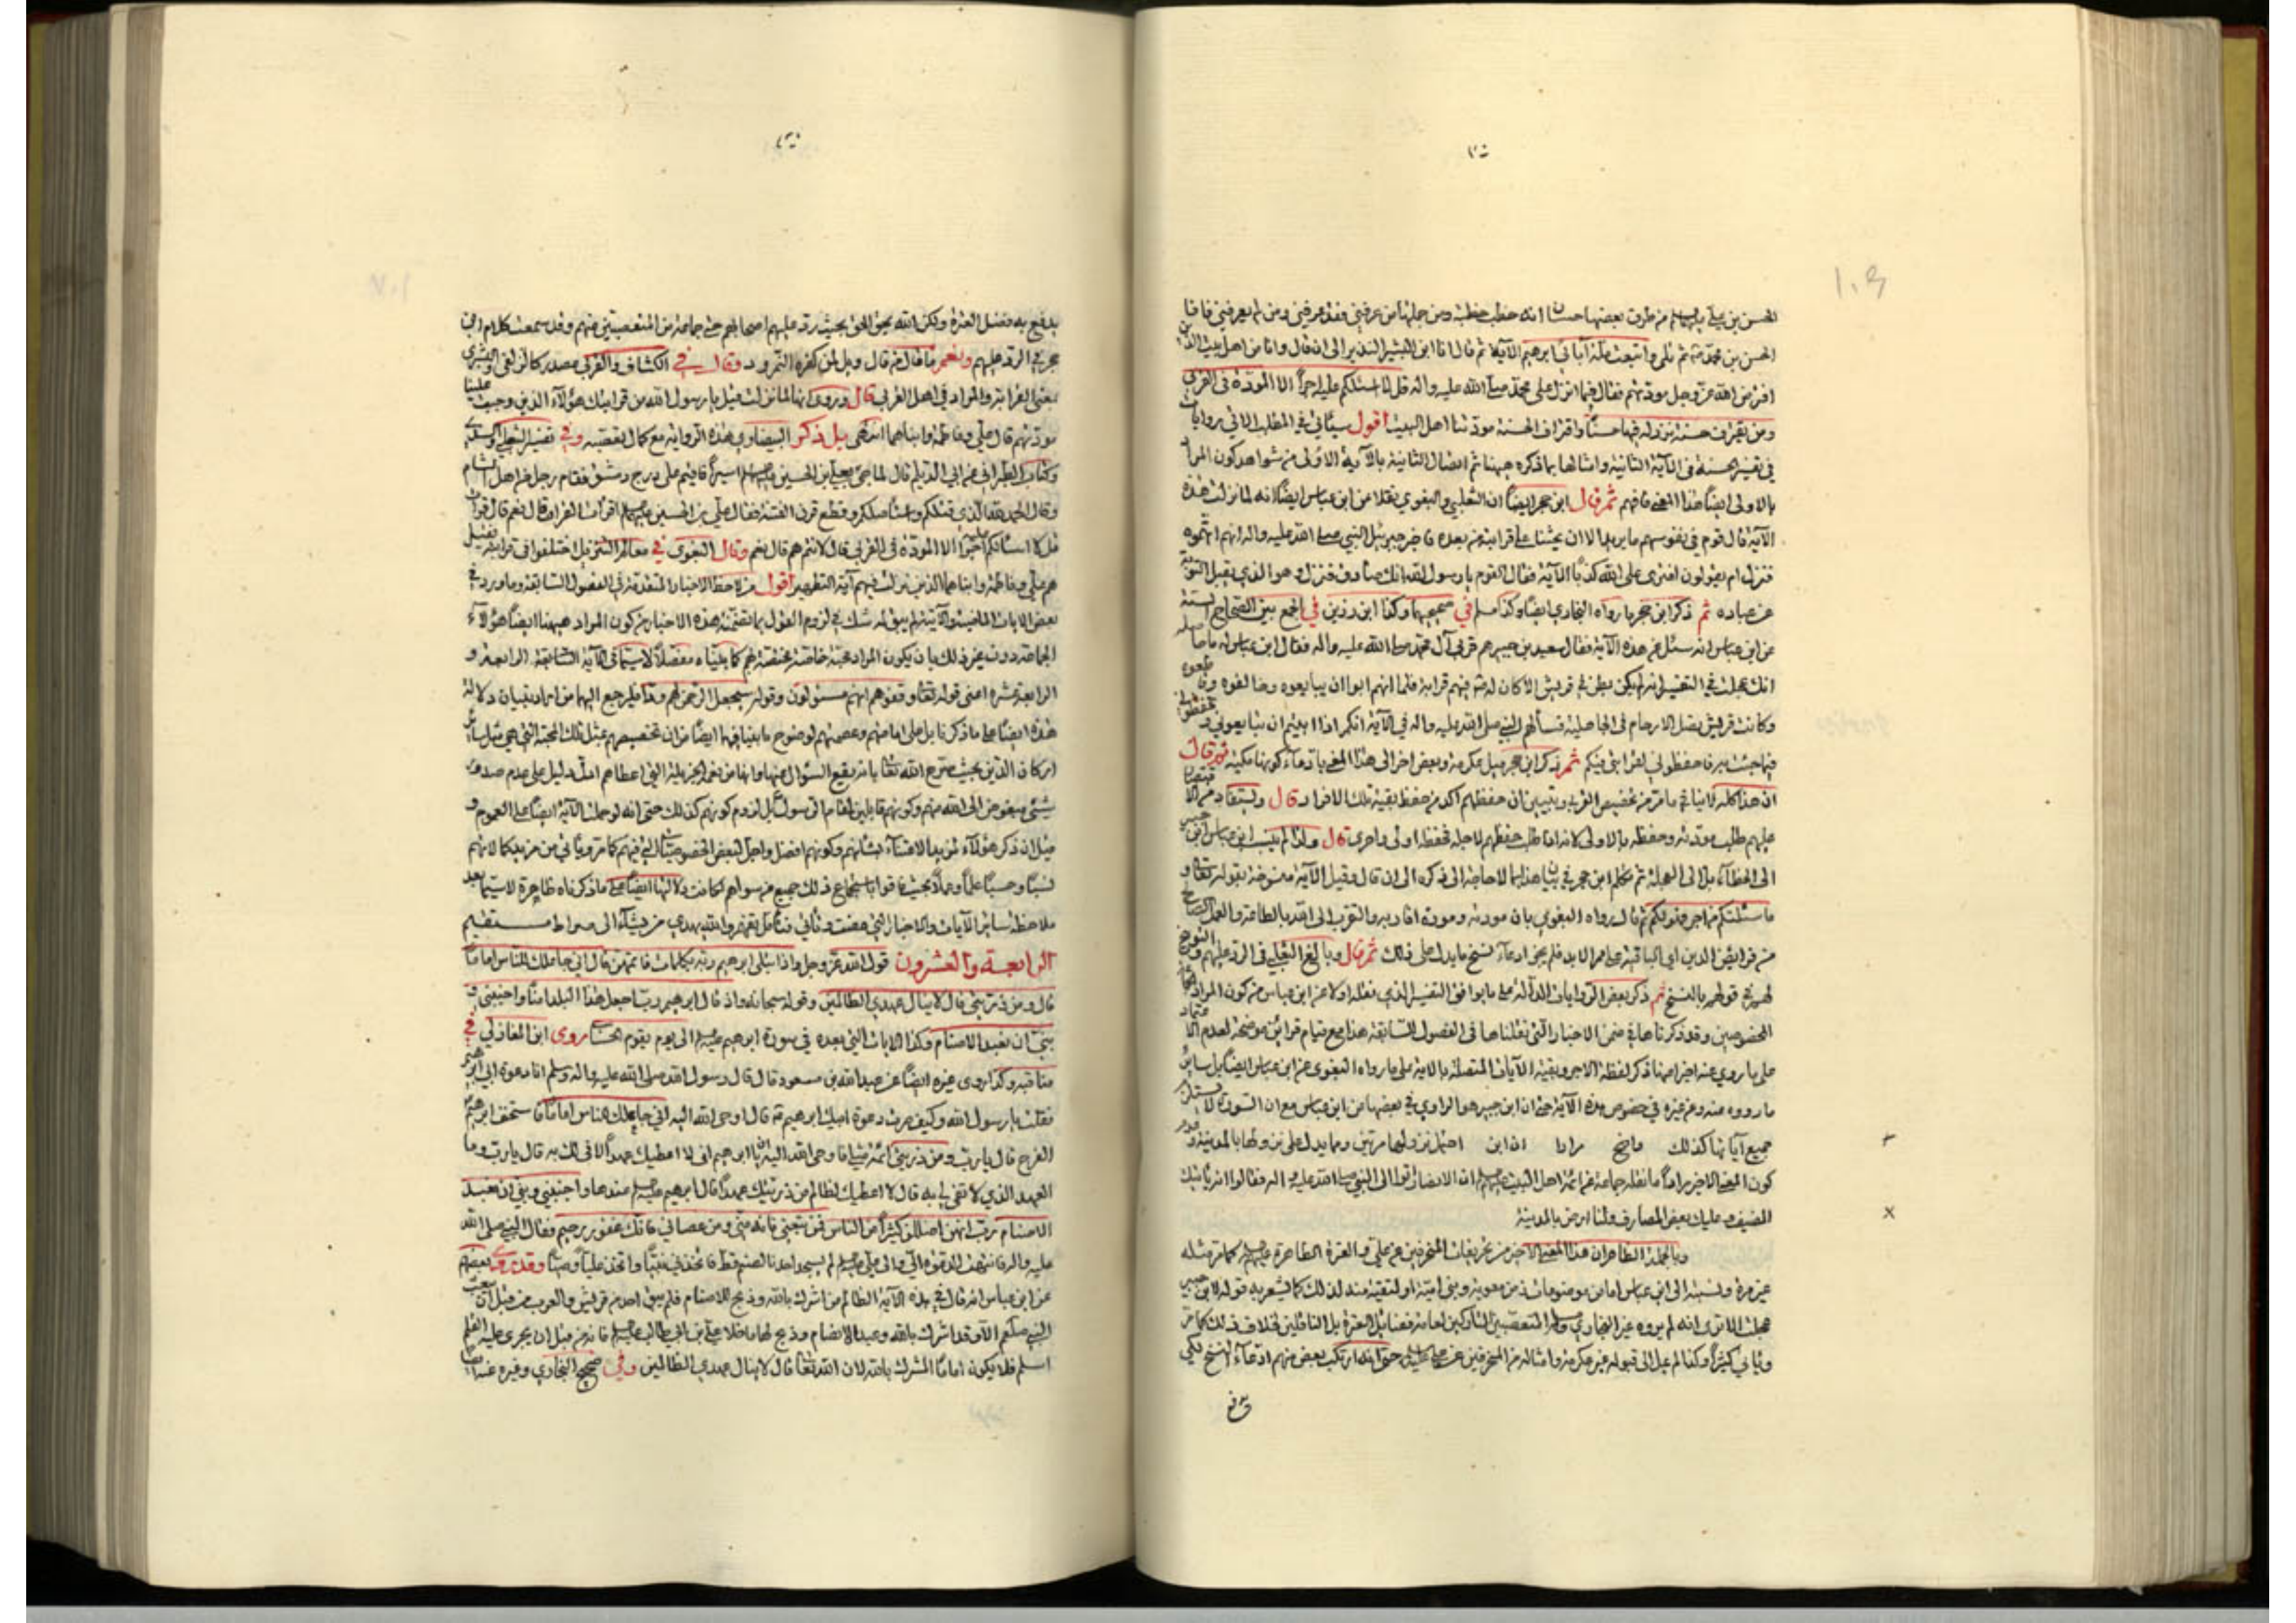 الحسن بن علي عليهما السلام من طرق بعضها حسان انه خطب خطبة ومن جملتها من عرفني فقد عرفني ومن لم يعرفني فانا
الحسن بن محمد ثم تلى واتبعت ملة آبائي ابرهيم الآية ثم قال انا ابن البشير النذير الى ان قال وانا من اهل بيت الذين
افترض الله عز وجل مودتهم فقال فيما انزل على محمد صلى الله عليه واله قل لا اسئلكم عليه اجرا الا المودة في القربى
ومن يقترف حسنة نزد له فيها حسنا واقتراف الحسنة مودتنا اهل البيت اقول سيأتي في المطلب الاتي روايات
في تفسير الحسنة في الآية الثانية وامثالها بما ذكره ههنا ثم اتصال الثانية بالآية الاولى من شواهد كون المراد
بالاولى ايضا هذا المعنى فافهم ثم قال ابن حجر ايضا ان الثعلبي والبغوي نقلا عن ابن عباس ايضا انه لما نزلت هذه
الآية قال قوم في نفوسهم ما يريد الا ان يحثنا على قرابته من بعده فاخبر جبرئيل النبي صلى الله عليه واله انهم اتهموه
فنزل ام يقولون افترى على الله كذبا الآية فقال القوم يا رسول الله انك صادق فنزل وهو الذي يقبل التوبة
عن عباده ثم ذكر ابن حجر ما رواه البخاري ايضا وكذا مسلم في صحيحيهما وكذا ابن رزين في الجمع بين الصحاح الستة
عن ابن عباس انه سئل عن هذه الآية فقال سعيد بن جبير هم قربى آل محمد صلى الله عليه واله فقال ابن عباس له ما حاصله
انك عجلت في التفسير انه لم يكن بطن في قريش الا كان له فيهم قرابة فلما انهم ابوا ان يبايعوه وخالفوه
وكانت قريش تصل الارحام في الجاهلية فسألهم النبي صلى الله عليه واله في الآية انكم اذا ابيتم ان تبايعوني
فيما جئت به فاحفظوني لقرابتي فيكم ثم ذكر ابن حجر ميل عكرمة وبعض اخر الى هذا المعنى بادعاء كونها مكية ثم قال
ان هذا كله لا ينافي ما مر من تخصيص القربى وتبيين ان حفظهم آكد من حفظ بقية تلك الافراد قال ويستفاد من الاقتصار
عليهم طلب مودته وحفظه بالاولى لانه اذا طلب حفظهم لاجله فحفظه اولى واحرى قال ولذا لم ينسب ابن عباس ابن جبير
الى الخطاء بل الى العجلة ثم تكلم ابن حجر في بيان هذا بما لا حاجة الى ذكره الى ان قال وقيل الآية منسوخة بقوله تعالى
ما سئلتكم من اجر فهو لكم ثم قال رواه البغوي بان مودته ومودة اقاربه والتقرب الى الله بالطاعة والعمل الصالح
من فرايض الدين اي الباقية على ممر الابد فلم يجز ادعاء نسخ ما يدل على ذلك ثم قال وبالغ الثعلبي في الرد عليهم
قولهم بالنسخ ثم ذكر بعض الروايات الدالة على ما يوافق التفسير الذي نقله اولا عن ابن عباس من كون المراد
المخصوصين وقد ذكرناها في ضمن الاخبار التي نقلناها في الفصول السابقة هذا مع قيام قرائن موضحة لعدم الاعتماد
على ما روي عنه اخيرا منها ذكر لفظة الاجر وبقية الآيات المتصلة بالاية على ما رواه البغوي عن ابن عباس ايضا بل سائر
ما رووه منه وعن غيره في خصوص هذه الآية حتى ان ابن جبير هو الراوي في بعضها عن ابن عباس مع ان السورة لا يستلزم
جميع آياتها كذلك واضح مرادا ان ابن احتمل نزولها مرتين ومما يدل على نزولها بالمدينة
كون المعنى الاخير مرادا ما نقله جماعة عن ائمة اهل البيت عليهم السلام ان الانصار اتوا الى النبي صلى الله عليه واله فقالوا انه ياتيك
الضيف وعليك بعض المصارف ولنا ارض بالمدينة
وبالجملة الظاهر ان هذا المعنى الاخر من تحريفات المنحرفين عن علي والعترة الطاهرة عليهم السلام كما مر مثله
غير مرة ونسبته الى ابن عباس اما من موضوعات زمن معوية وبني امية او لتقية منه لذلك كما يشعر به قوله لابن جبير
عجلت الا ترى انه لم يروه غير البخاري ومسلم المتعصبين التاركين لعامة فضائل العترة بل الناقلين بخلاف ذلك كما مر
ويأتي كثيرا وكذا لم يمل الى قبوله غير عكرمة وامثاله من المنحرفين عن علي عليه السلام حتى انه ارتكب بعض منهم ادعاء النسخ لكي
يدفع به فضل العترة ولكن الله يحق الحق بحيث رد عليهم اصحابهم حتى جماعة من المتعصبين منهم وقد سمعت كلام ابن
حجر في الرد عليهم ونعم ما قال من قال ويل لمن كفره النمرود وقال في الكشاف والقربى مصدر كالزلفى والبشرى
بمعنى القرابة والمراد في اهل القربى قال وروي انها لما نزلت قيل يا رسول الله من قرابتك هؤلآء الذين وجبت علينا
مودتهم قال علي وفاطمة وابناهما انتهى بل ذكر البيضاوي هذه الرواية مع كمال تعصبه وفي تفسير الثعلبي
وكتاب الطبراني عن ابي الديلم قال لما جيئ بعلي بن الحسين عليهما السلام اسيرا فاقيم على درج دمشق فقام رجل من اهل الشام
وقال الحمد لله الذي قتلكم واستأصلكم وقطع قرن الفتنة فقال علي بن الحسين عليهما السلام اقرأت القرآن قال نعم قال قرأت
قل لا اسئلكم عليه اجرا الا المودة في القربى قال لانتم هم قال نعم وقال البغوي في معالم التنزيل اختلفوا في قرابته فقيل
هم علي وفاطمة وابناهما الذين نزلت فيهم آية التطهير اقول من لاحظ الاخبار المتقدمة في الفصول السابقة وما ورد في
بعض الايات الماضية والآتية لم يبق له شك في لزوم القول بما تضمنته هذه الاخبار من كون المراد ههنا ايضا هؤلآء
الجماعة دون غيرهم وذلك بان يكون المراد محبة خاصة مختصة لهم كما بيناه مفصلا لا سيما في الآية السابقة الرابعة و
الرابعة عشرة اعني قوله تعالى وقفوهم انهم مسئولون وقوله سيجعل لهم الرحمن ودا فليرجع اليهما من اراد بيان دلالة
هذه ايضا على ما ذكرنا بل على امامتهم وعصمتهم لوضوح ما بينا فيها ايضا من ان تخصيصهم بمثل تلك المحبة التي هي مثل سائر
اركان الدين بحيث صرح الله تعالى بانه يقع السؤال عنها وانها من نعمه الجزيلة التي اعطاهم ادل دليل على عدم صدور
شيئ مبغوض الى الله منهم وكونهم قابلين لمقام الرسول بل لزوم كونهم كذلك حتى انه لو حملت الآية ايضا على العموم و
قيل ان ذكر هؤلآء لمزيد الاعتناء بشأنهم وكونهم افضل واجل لبعض الخصوصيات التي فيهم كما مر ويأتي من مزيد كمالاتهم
نسبا وحسبا علما وعملا بحيث فاقوا باستجماع ذلك جميع من سواهم لكانت دلالتها ايضا على ما ذكرناه ظاهرة لا سيما بعد
ملاحظة سائر الآيات والاخبار التي مضت وتأتي فتأمل تفهم والله يهدي من يشآء الى صراط مستقيم
الرابعة والعشرون قول الله عز وجل واذ ابتلى ابرهيم ربه بكلمات فاتمهن قال اني جاعلك للناس اماما
قال ومن ذريتي قال لا ينال عهدي الظالمين وقوله سبحانه واذ قال ابرهيم رب اجعل هذا البلد امنا واجنبني و
بني ان نعبد الاصنام وكذا الايات التي بعده في سورة ابرهيم عليه السلام الى يوم يقوم الحساب روى ابن المغازلي في
مناقبه وكذا روى غيره ايضا عن عبد الله بن مسعود قال قال رسول الله صلى الله عليه واله وسلم انا دعوة ابي ابرهيم
فقلت يا رسول الله وكيف صرت دعوة ابيك ابرهيم قال اوحى الله اليه اني جاعلك للناس اماما فاستخف ابرهيم
الفرح قال يا رب ومن ذريتي ائمة مثلي فاوحى الله اليه ان يا ابرهيم اني لا اعطيك عهدا لا افي لك به قال يا رب وما
العهد الذي لا تفي لي به قال لا اعطيك لظالم من ذريتك عهدا قال ابرهيم عليه السلام عندها واجنبني وبني ان نعبد
الاصنام رب انهن اضللن كثيرا من الناس فمن تبعني فانه مني ومن عصاني فانك غفور رحيم فقال النبي صلى الله
عليه واله فانتهت الدعوة الي والى علي عليه السلام لم يسجد احدنا لصنم قط فاتخذني نبيا واتخذ عليا وصيا وقد روى بعضهم
عن ابن عباس انه قال في هذه الآية الظالم من اشرك بالله وذبح للاصنام فلم يبق احد من قريش والعرب من قبل ان يبعث
النبي صلعم الا وقد اشرك بالله وعبد الاصنام وذبح لها ما خلا علي بن ابي طالب عليه السلام فانه من قبل ان يجرى عليه القلم
اسلم فلا يكون اماما المشرك بالله لان الله تعالى قال لا ينال عهدي الظالمين وفي صحيح البخاري وغيره عنه